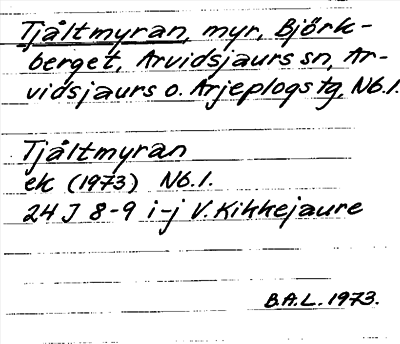 Tjåltmyran, myr, Björk-
berget, Arvidsjaurs sn, Ar-
vidsjaurs o. Arjeplogs tg, Nb.l.
Tjåltmyran
ek (1973) Nb.l.
24 J 8-9 i-j V. Kikkejaure
B.A.L. 1973.